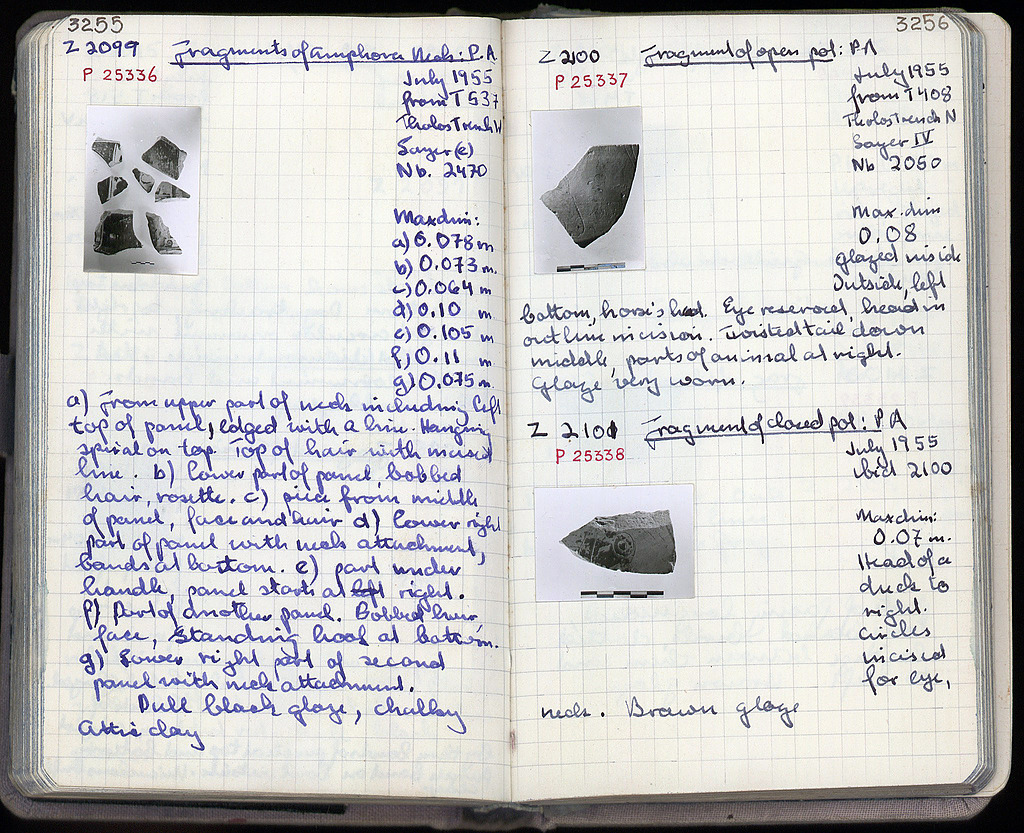 3255
Z 2099 Fragments of amphora Neck: P.A
P 25336
July 1955
from T 537
Tholos Trench W
Layer (e)
Nb. 2470
Max dim:
a) 0.078 m
b) 0.073 m.
c) 0.064 m
d) 0.10 m
e) 0.105 m
f) 0.11 m
g) 0.075 m.
a) From upper part of neck including left
top of panel, edged with a line. Hanging
spiral on top. Top of hair with incised
line. b) Lower part of panel, bobbed
hair, rosette. c) piece from middle
of panel, face and hair d) Lower right
part of panel with neck attachment,
bands at bottom. e) part under
handle, panel starts at left right.
f) Part of another panel. Bobbed hair,
face, standing hoof at bottom.
g) Lower right part of second
panel with neck attachment.
Dull black glaze, chalky
Attic clay
3256
Z 2100 Fragment of open pot: P.A
P 25337
July 1955
from T 408
Tholos Trench N
Layer IV
Nb 2050
Max. dim
0.08
glazed inside
Outside, left
bottom, horse's head. Eye reserved, head in
outline incision. Twisted tail down
middle, parts of animal at right.
Glaze very worn.
Z 2101 Fragment of closed pot: P.A
P 25338
July 1955
ibid 2100
Max dim:
0.07 m.
Head of a
duck to
right.
circles
incised
for eye,
neck. Brown glaze